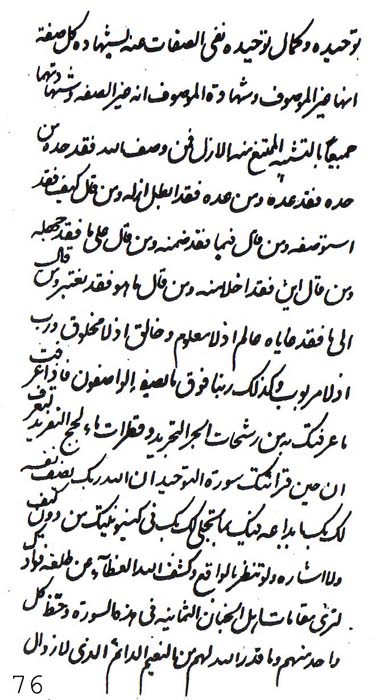 بتوحیده و کمال توحیده نفی الصفات عنه لشهادة کل صفة
انها غیر الموصوف و شهادة الموصوف انه غیر الصفه و شهادتهما
جمیعا بالتشبیه الممتنع منه الازل فمن وصف الله فقد حده و من
حده فقد عده و من عده فقد ابطل ازله و من قال کیف فقد
استوصفه و من قال فیما فقد ضمنه و من قال علی ما فقد جهله
و من قال این فقد اخلا منه و من قال ما هو فقد نعته و من قال
الی ما فقد غایاه عالم اذ لا معلوم و خالق اذ لا مخلوق و رب
اذ لا مربوب و کذلک ربنا فوق ما یصفه الواصفون فاذا عرفت
ما عرفتک به من رشحات ابحر التجرید و قطرات ماء لجج التفرید
ان حین قرائتک سورة التوحید ان الله ربک یصف نفسه
لک بک بابداعه فیک بما تجلی لک بک فی کینونیتک من دون کیف
ولا اشاره ولو تنظر بالواقع و کشف الله الغطآء عن فؤادک
لتری مقامات اهل الجنان الثمانیه فی هذه السورة و حظ کل
واحد منهم و ما قدر الله لهم من النعیم الدائم الذی لا زوال
76